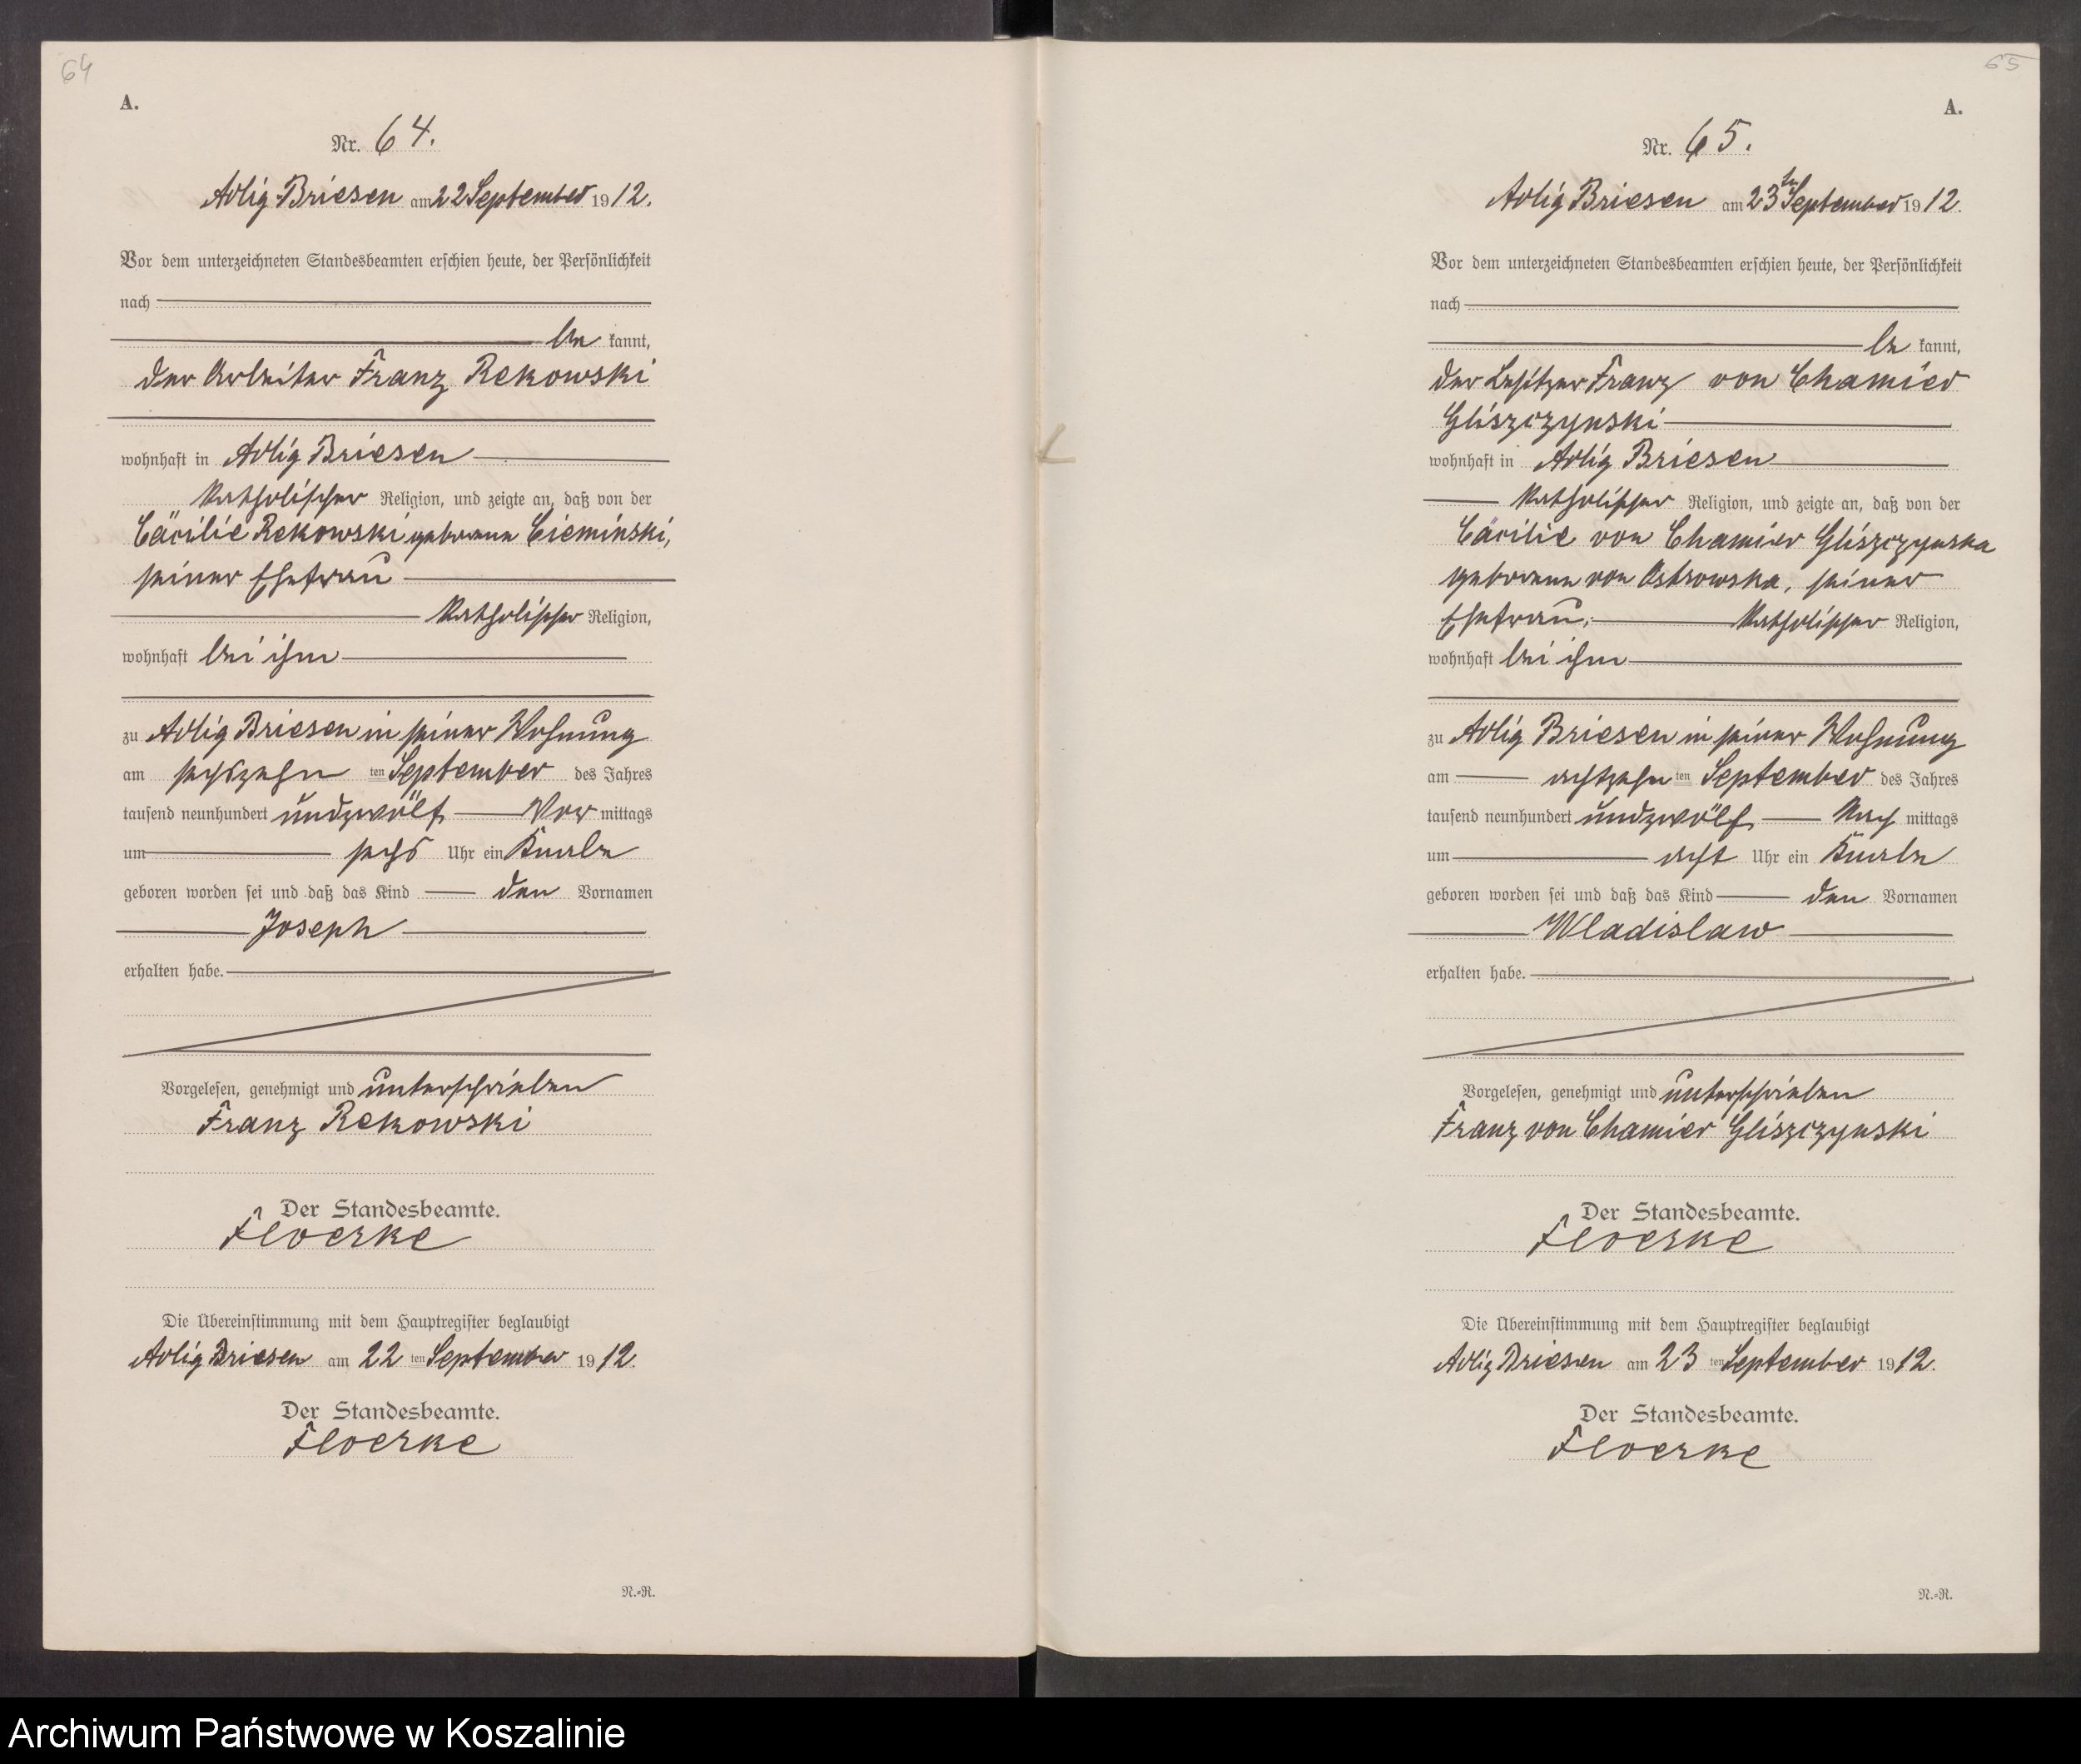 64
A.
Nr. 64.
Adlig Briesen am 22 September 1912.
Vor dem unterzeichneten Standesbeamten erschien heute, der Persönlichkeit
nach
be kannt,
der Arbeiter Franz Rekowski
wohnhaft in Adlig Briesen
katholischer Religion, und zeigte an, daß von der
Cäcilie Rekowski geborene Cieminski,
seiner Ehefrau
katholischer Religion,
wohnhaft bei ihm
zu Adlig Briesen in seiner Wohnung
am sechszehn ten September des Jahres
tausend neunhundert undzwölf Vor mittags
um sechs Uhr ein Knabe
geboren worden sei und daß das Kind den Vornamen
Joseph
erhalten habe.
Vorgelesen, genehmigt und unterschrieben
Franz Rekowski
Der Standesbeamte.
Floerke
Die Übereinstimmung mit dem Hauptregister beglaubigt
Adlig Briesen am 22 ten September 1912.
Der Standesbeamte.
Floerke
N.=R.
65
A.
Nr. 65.
Adlig Briesen am 23 ten September 1912.
Vor dem unterzeichneten Standesbeamten erschien heute, der Persönlichkeit
nach
be kannt,
der Besitzer Franz von Chamier
Gliszczynski
wohnhaft in Adlig Briesen
katholischer Religion, und zeigte an, daß von der
Cäcilie von Chamier Gliszczynska
geborene von Ostrowska, seiner
Ehefrau, katholischer Religion,
wohnhaft bei ihm
zu Adlig Briesen in seiner Wohnung
am achtzehn ten September des Jahres
tausend neunhundert undzwölf Nach mittags
um acht Uhr ein Knabe
geboren worden sei und daß das Kind den Vornamen
Wladislaw
erhalten habe.
Vorgelesen, genehmigt und unterschrieben
Franz von Chamier Gliszczynski
Der Standesbeamte.
Floerke
Die Übereinstimmung mit dem Hauptregister beglaubigt
Adlig Briesen am 23 ten September 1912.
Der Standesbeamte.
Floerke
N.=R.
Archiwum Państwowe w Koszalinie